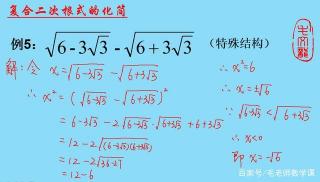 复合二次根式的化简
例5：√(6-3√3) - √(6+3√3) （特殊结构）
解：令 x=√(6-3√3) - √(6+3√3)
∴ x²=(√(6-3√3) - √(6+3√3))²
=6-3√3-2√(6-3√3)·√(6+3√3)+6+3√3
=12-2√((6-3√3)(6+3√3))
=12-2√(36-27)
=12-6
∴ x²=6
∴ x=±√6
∵ √(6-3√3)<√(6+3√3)
∴ x<0
即 x=-√6
百家号/毛老师教学课